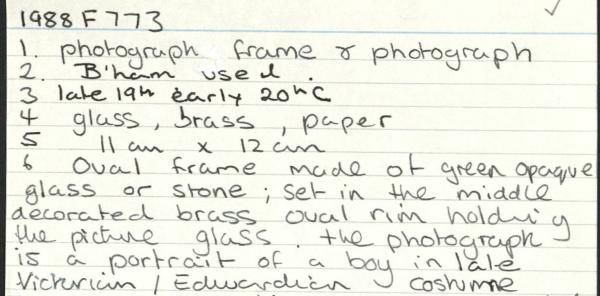 1988 F 773
1. photograph frame & photograph
2. B'ham used.
3 late 19th early 20th C
4 glass, brass, paper
5 11 cm x 12 cm
6 Oval frame made of green opaque
glass or stone; set in the middle
decorated brass oval rim holding
the picture glass. the photograph
is a portrait of a boy in late
Victorian / Edwardian costume